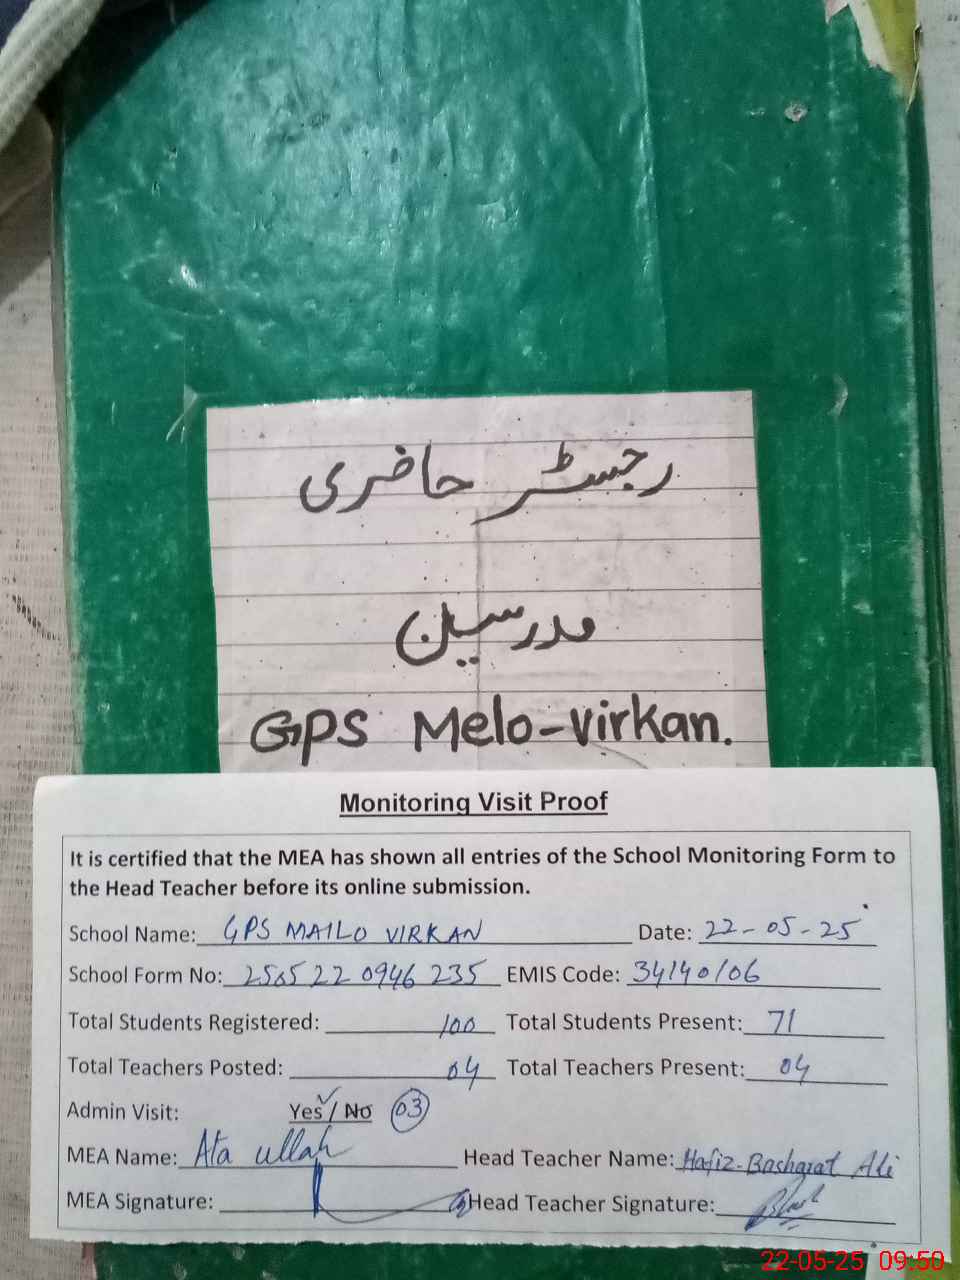 رجسٹر حاضری
مدرسین
GPS Melo-virkan.
Monitoring Visit Proof
It is certified that the MEA has shown all entries of the School Monitoring Form to
the Head Teacher before its online submission.
School Name: GPS MAILO VIRKAN Date: 22-05-25
School Form No: 2505 22 0946 235 EMIS Code: 34140106
Total Students Registered: 100 Total Students Present: 71
Total Teachers Posted: 04 Total Teachers Present: 04
Admin Visit: Yes ✓ / No 03
MEA Name: Ata ullah Head Teacher Name: Hafiz-Basharat Ali
MEA Signature: Head Teacher Signature:
22-05-25 09:50